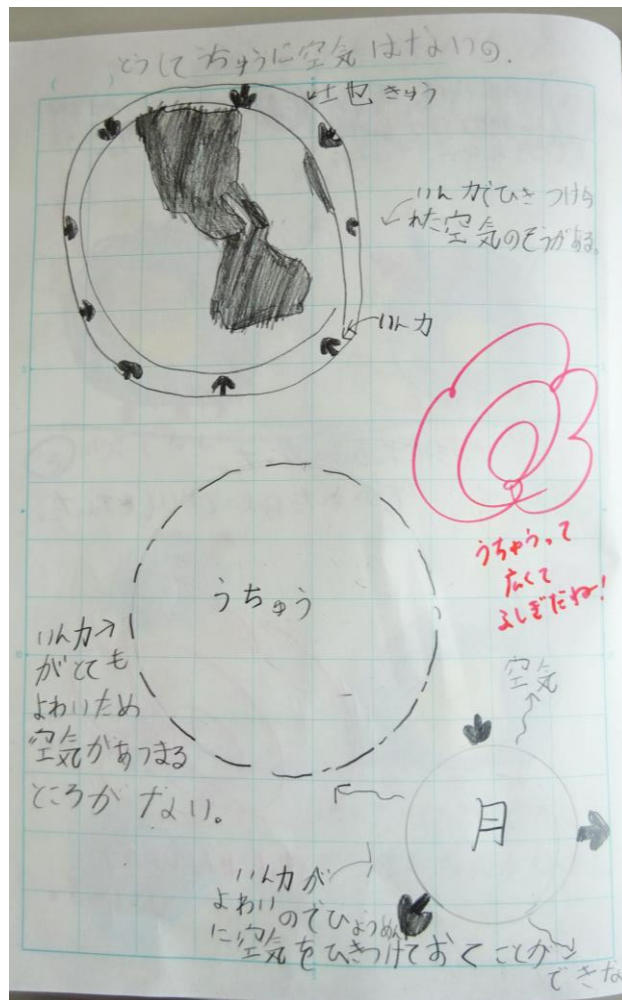 どうしてちゅうに空気はないの.
地きゅう
いん力でひきつけら
れた空気のそうがある。
いん力
うちゅうって
広くて
ふしぎだね!
うちゅう
いん力→
がとても
よわいため
空気があつまる
ところがない。
空気
月
いん力が
よわい
のでひょうめん
に空気をひきつけておくことが
できな